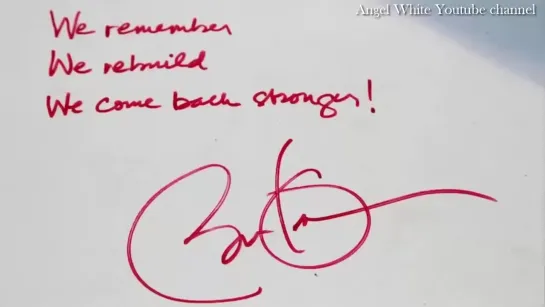 Angel White Youtube channel
We remember
We rebuild
We come back stronger!